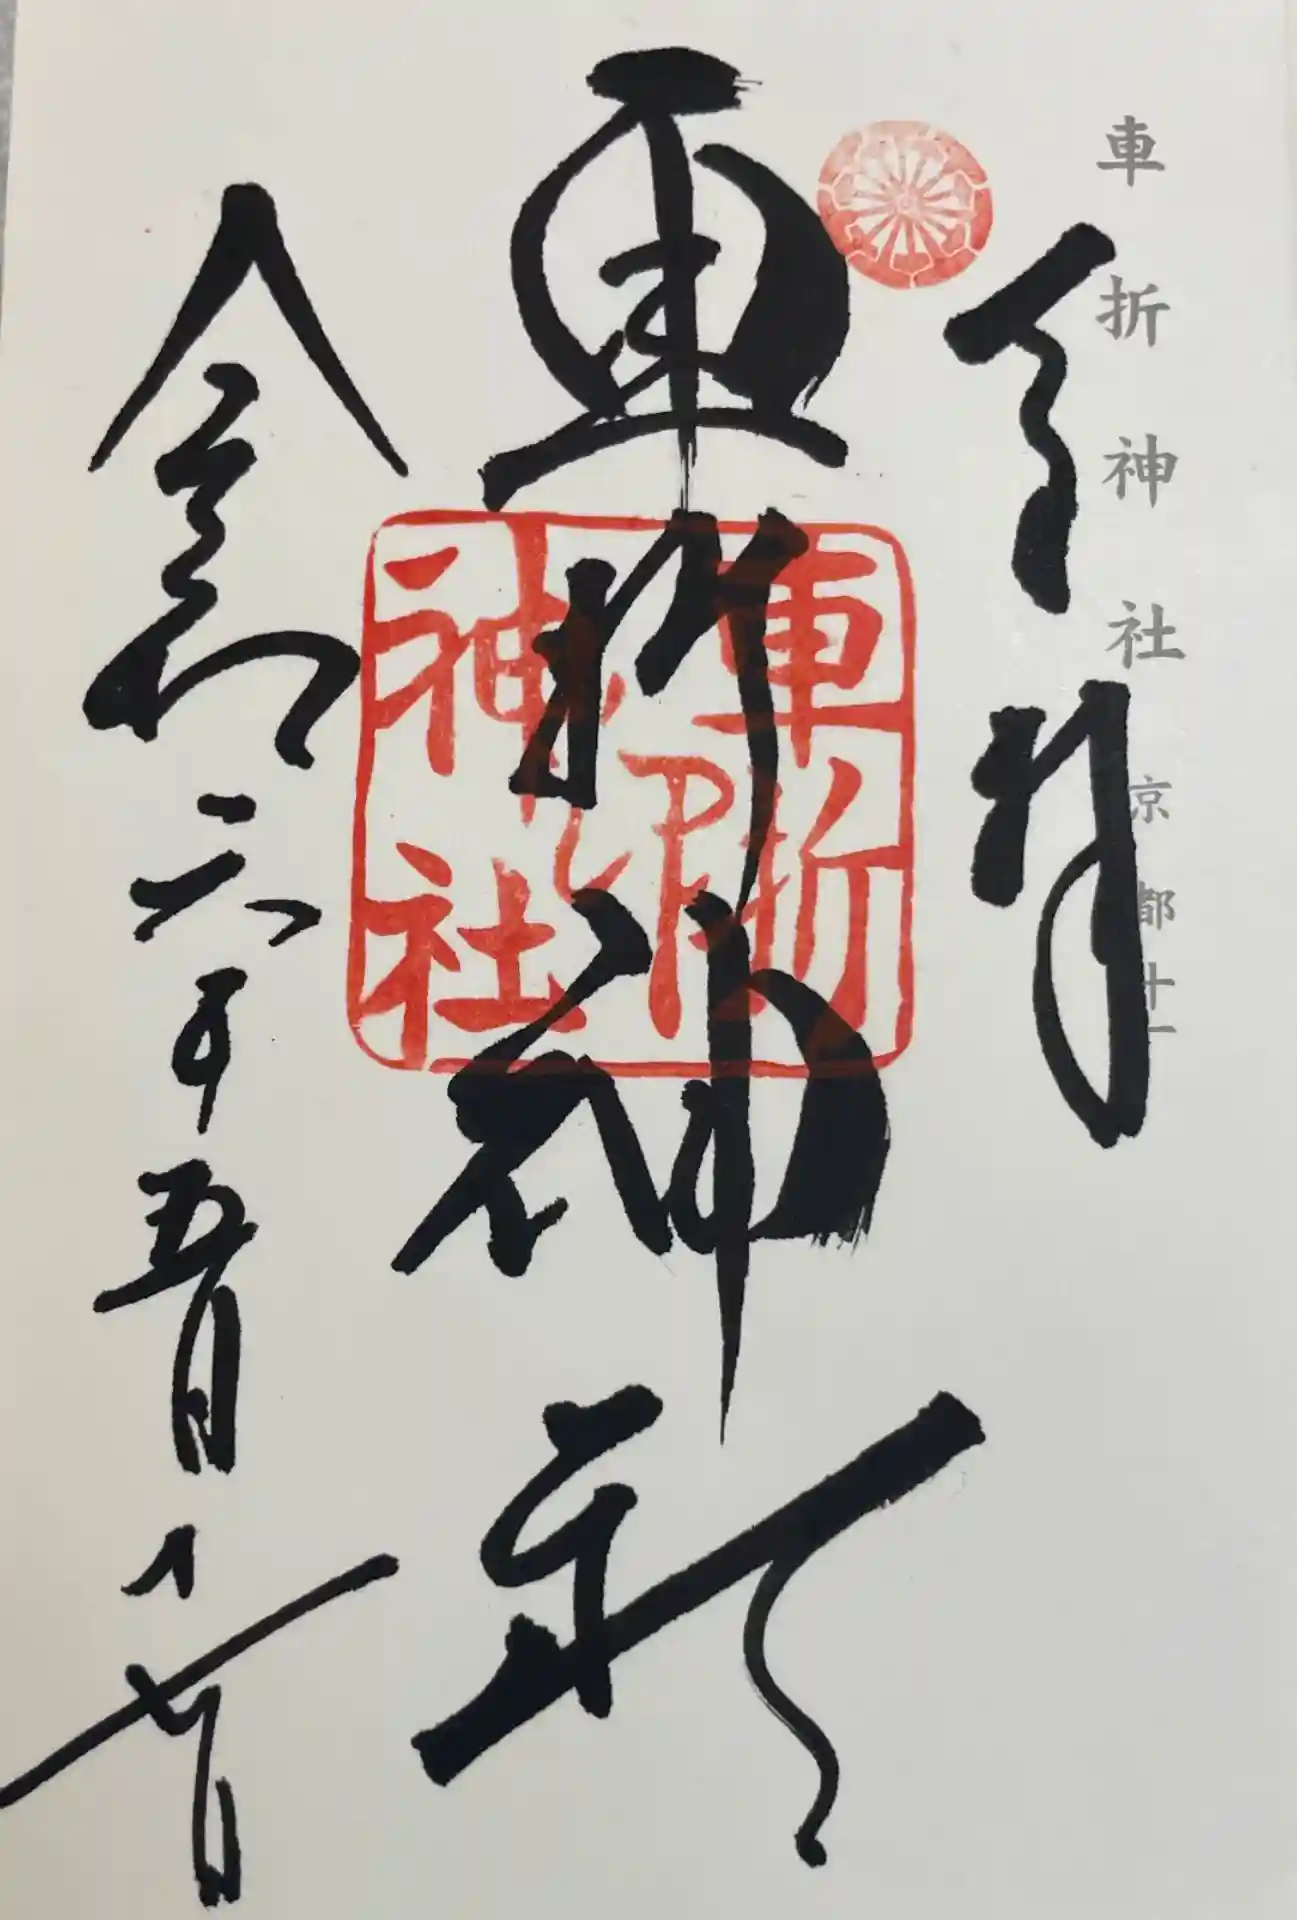 車折神社 京都十一
奉拝
車折神社
車折
神社
令和六年五月十七日